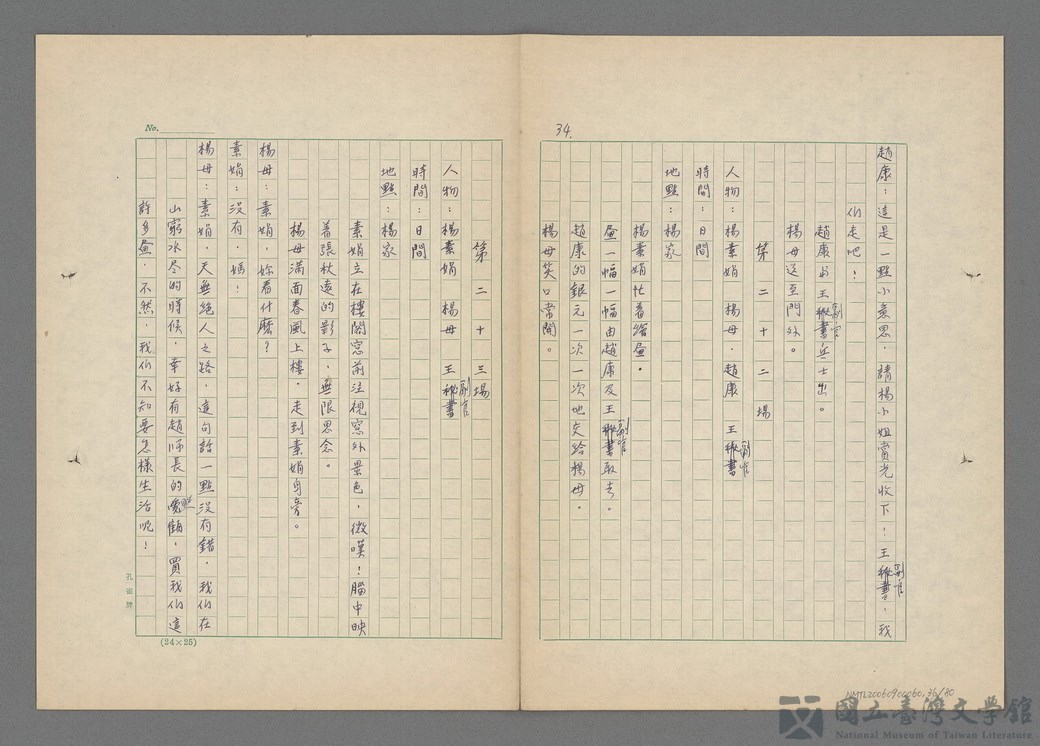 34.
趙康：這是一點小意思，請楊小姐賞光收下！王副官，我
們走吧！
趙康与王副官兵士出。
楊母送至門外。
第二十二場
人物：楊素娟 楊母．趙康 王副官
時間：日間
地點：楊家
楊素娟忙着繪畫．
畫一幅一幅由趙康及王副官取去。
趙康的銀元一次一次地交給楊母．
楊母笑口常開。
第二十三場
人物：楊素娟 楊母 王副官
時間：日間
地點：楊家
素娟立在樓閣窓前注視窓外景色，微嘆！腦中映
着張秋遠的影子，無限思念。
楊母滿面春風上樓．走到素娟身旁。
楊母：素娟，妳看什麽？
素娟：沒有．媽！
楊母：素娟．天無絕人之路，這句話一點沒有錯．我們在
山窮水尽的時候，幸好有趙師長的照顧，買我們這
許多畫．不然，我們不知要怎樣生活呢！
No.
孔雀牌
(24×25)
NMTL20060900060.36/80
國立臺灣文學館
National Museum of Taiwan Literature